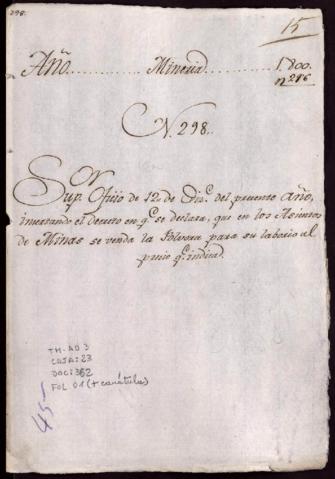 298.
15
Año............Mineria............1.800.
nº 216
N. 298.
Sor
Sup. Ofizio de 12. de Dire. del preсente Año,
insertando el decreto en qe. se declara, que en los Asientos
de Minas se venda la Polvora para su laborio al
precio qe. indica.
TM-AD 3
CAJA: 23
DOC: 362
FOL 01 (+ carátula)
45